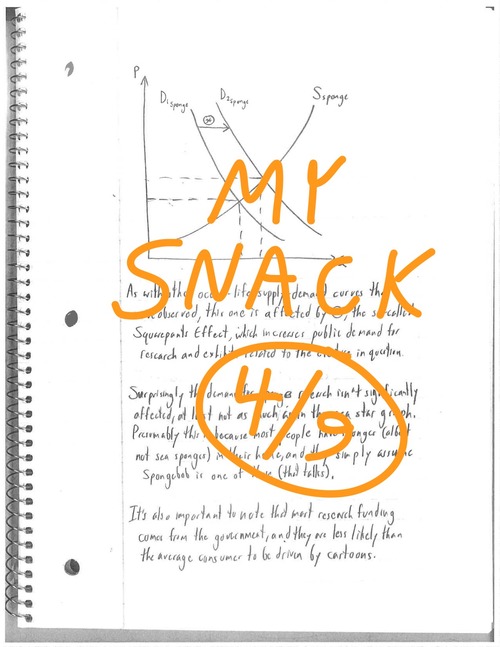 P
D1sponge D2sponge Ssponge
MY
SNACK
As with the other ocean-life supply-demand curves
observed, this one is affected by the so-called
Squarepants Effect, which increases public demand for
research and exhibits related to the creature in question.
4/9
Surprisingly the demand for sponge research isn't significantly
affected, at least not as much as in the sea star graph.
Presumably this is because most people have sponges (albeit
not sea sponges) in their home, and they simply assume
Spongebob is one of those (that talks).
It's also important to note that most research funding
comes from the government, and they are less likely than
the average consumer to be driven by cartoons.